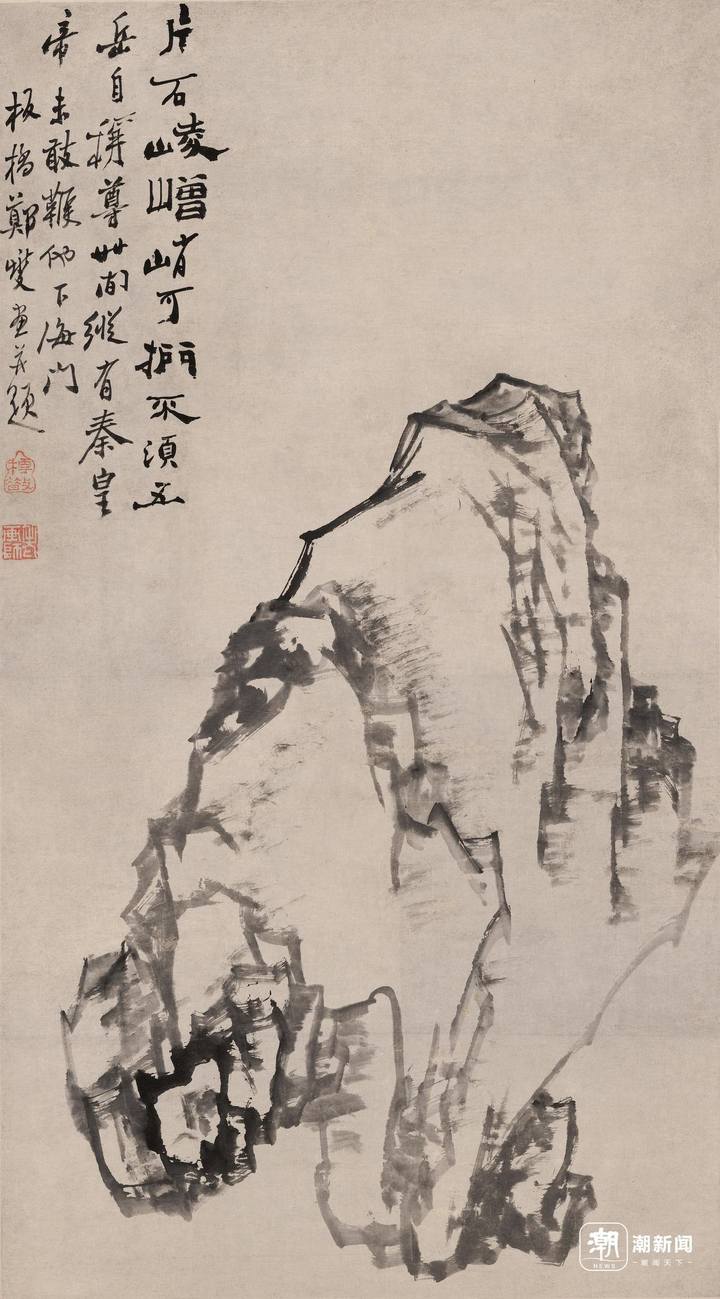 片石崚嶒峭可捫不須五
岳自稱尊世間縱有秦皇
帝未敢鞭他下海門
板橋鄭燮畫并題
潮
NEWS
潮新闻